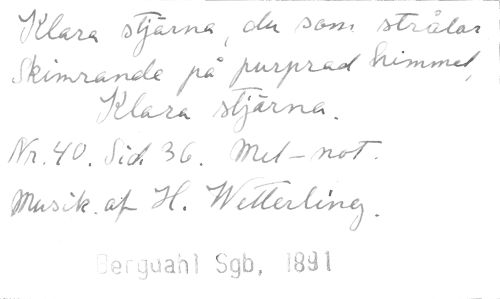 Klara stjärna, du som strålar
Skimrande på purprad himmel,
Klara stjärna.
Nr. 40. Sid. 36. Mel-not.
Musik. af H. Wetterling.
Berguahl Sgb, 1891